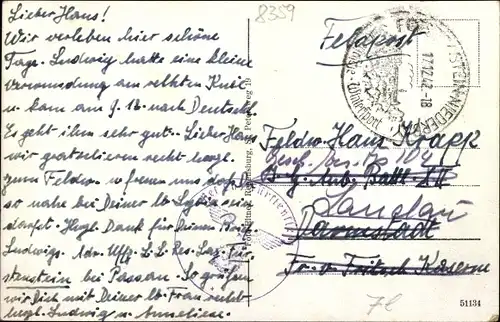 Lieber Hans!
Wir verleben hier schöne
Tage. Ludwig hatte eine kleine
Verwundung am rechten Knie
u. kam am 9.12. nach Deutschl.
Es geht ihm sehr gut. - Lieber Hans
wir gratulieren recht herzl.
zum Feldw. u. freuen uns daß
so nahe bei Deiner lb. Lydia sein
darfst. Herzl. Dank für Deinen
Ludwigs Adr. Uffz. L. L. Res. Laz. Für-
stenstein bei Passau. So grüßen
wir Dich mit Deiner lb. Frau recht
herzl. Ludwig u. Anneliese.
8359
Feldpost
17.12.42.-18
Feldw. Hans Krapp
Landau
Darmstadt
Fr. v. Fritsch Kaserne
51134